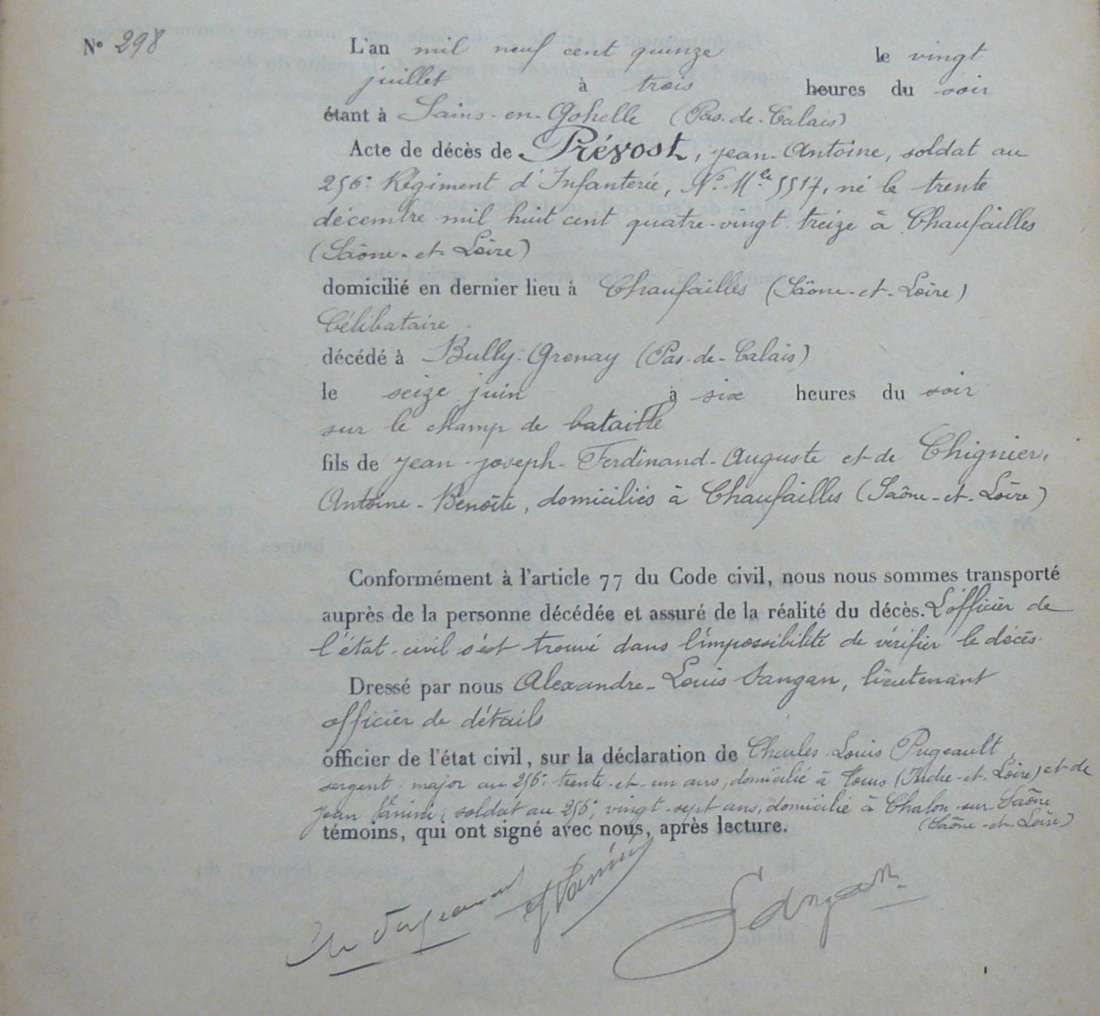 N° 298
L'an mil neuf cent quinze le vingt
juillet à trois heures du soir
étant à Sains-en-Gohelle (Pas-de-Calais)
Acte de décès de Prévost, Jean-Antoine, soldat au
256e Régiment d'Infanterie, No Mle 5517, né le trente
décembre mil huit cent quatre-vingt treize à Chauffailles
(Saône-et-Loire)
domicilié en dernier lieu à Chaufailles (Saône-et-Loire)
Célibataire.
décédé à Bully-Grenay (Pas-de-Calais)
le seize juin à six heures du soir
sur le champ de bataille
fils de Jean-Joseph-Ferdinand-Auguste et de Chignier,
Antoine-Benoîte, domiciliés à Chaufailles (Saône-et-Loire)
Conformément à l'article 77 du Code civil, nous nous sommes transporté
auprès de la personne décédée et assuré de la réalité du décès. L'officier de
l'état-civil s'est trouvé dans l'impossibilité de vérifier le décès.
Dressé par nous Alexandre-Louis Sangan, lieutenant
officier de détails
officier de l'état civil, sur la déclaration de Charles Louis Pugeault,
sergent-major au 256e trente-et-un ans, domicilié à Tours (Indre-et-Loire) et de
Jean Janin, soldat au 256e, vingt-sept ans, domicilié à Chalon-sur-Saône
(Saône-et-Loire)
témoins, qui ont signé avec nous, après lecture.
Sangan